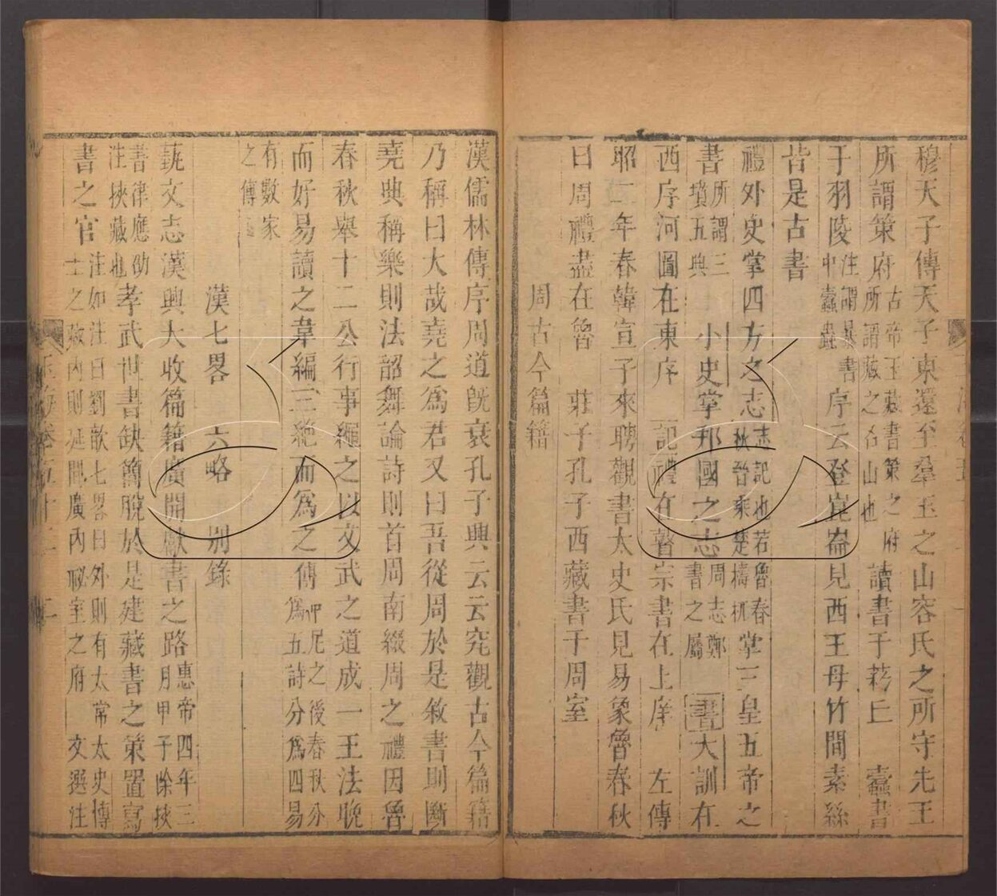 穆天子傳天子東還至羣玉之山容氏之所守先王
所謂策府古帝王藏書策之府所謂藏之名山也讀書于菞丘 蠹書
于羽陵注謂暴書中蠹蟲序云登崑崙見西王母竹間素絲
皆是古書
禮外史掌四方之志志記也若魯春秋晉乘楚檮杌掌三皇五帝之
書所謂三墳五典 小史掌邦國之志周志鄭書之屬 書大訓在
西序河圖在東序 記禮在瞽宗書在上庠 左傳
昭二年春韓宣子來聘觀書太史氏見易象魯春秋
曰周禮盡在魯 莊子孔子西藏書于周室
周古今篇籍
漢儒林傳序周道既衰孔子興云云究觀古今篇籍
乃稱曰大哉堯之為君又曰吾從周於是敘書則斷
堯典稱樂則法韶舞論詩則首周南綴周之禮因魯
春秋舉十二公行事繩之以文武之道成一王法晚
而好易讀之韋編三絕而為之傳仲尼之後春秋分為五詩分為四易
有數家之傳
漢七畧 六略 別錄
藝文志漢興大收篇籍廣開獻書之路惠帝四年三月甲子除挾
書律應劭注挾藏也孝武世書缺簡脫於是建藏書之策置寫
書之官注如注曰劉歆七畧曰外則有太常太史博士之藏內則延閣廣內祕室之府 文選注